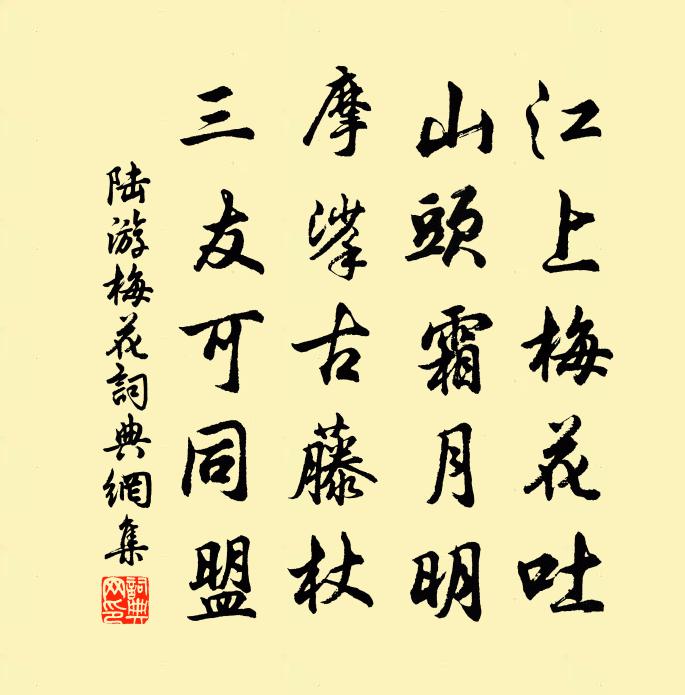 江上梅花吐
山頭霜月明
摩挲古藤杖
三友可同盟
陆游梅花詞典網集
詞典网印